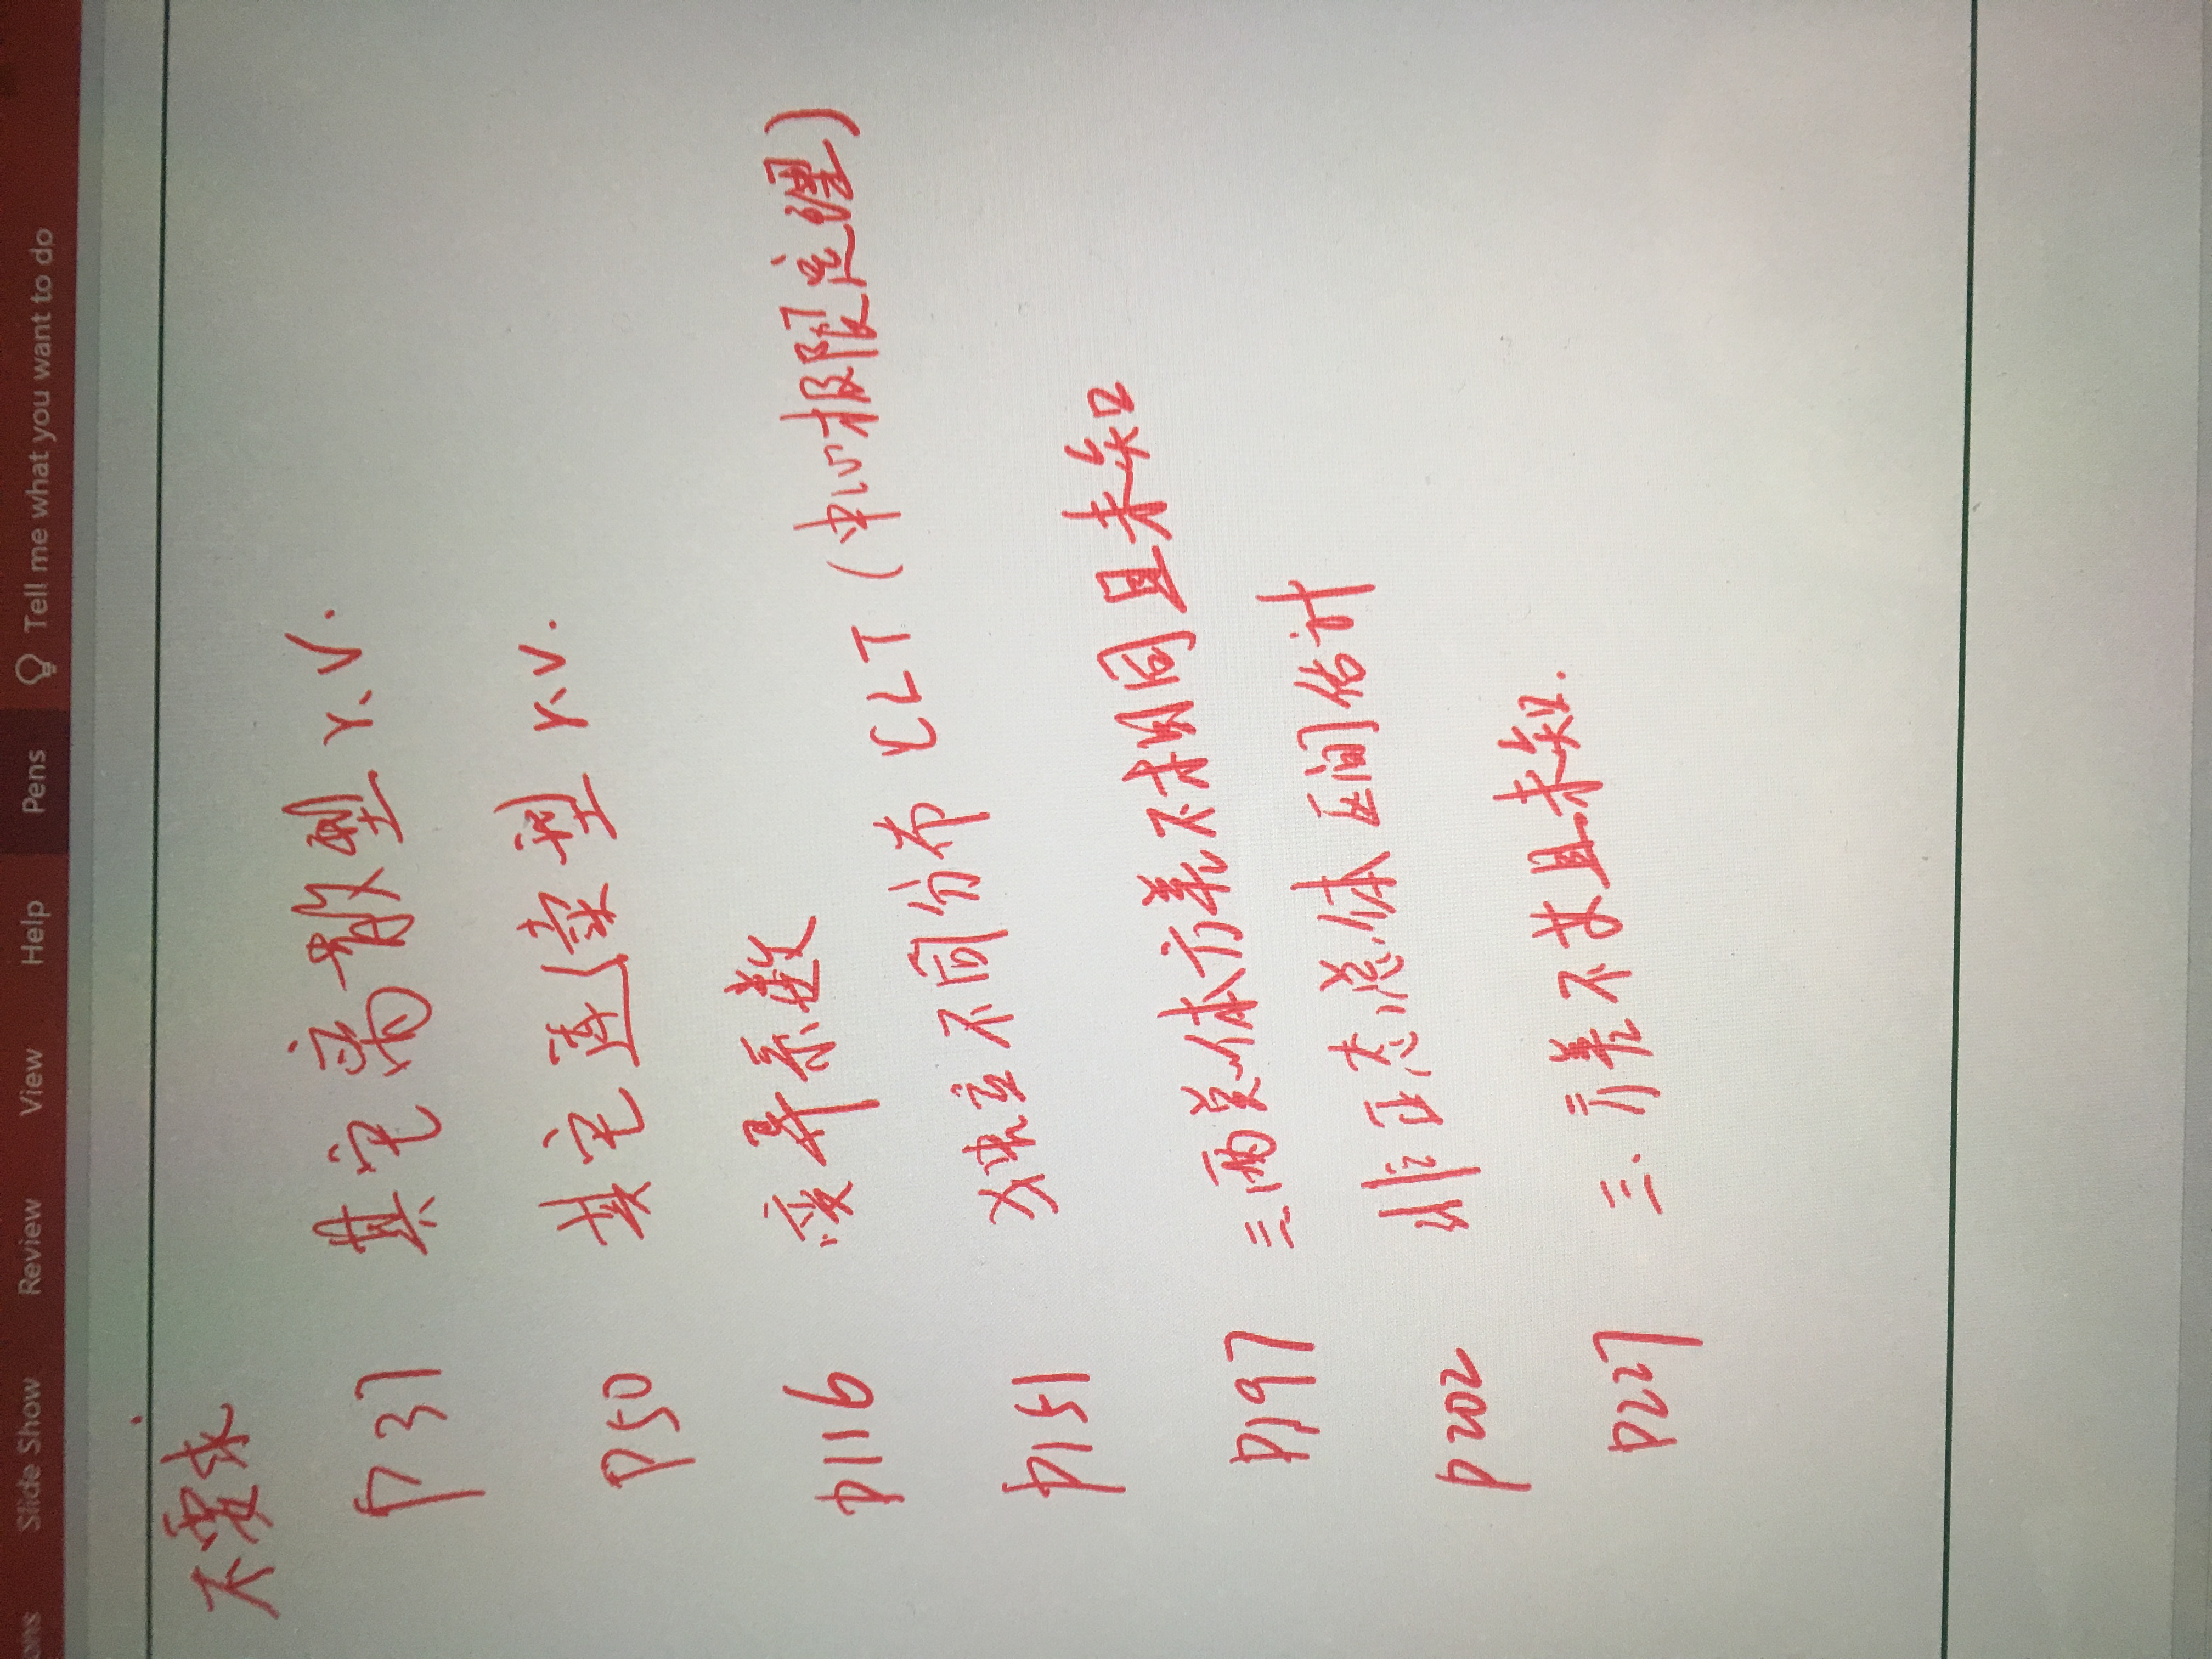 ons Slide Show Review View Help Pens Tell me what you want to do
不要求
P37 其它离散型 r.v.
P50 其它连续型 r.v.
P116 变异系数
P151 独立不同分布 CLT (中心极限定理)
P197 三、两总体方差不相同且未知
P202 非正态总体区间估计
P227 三. 方差不等且未知.